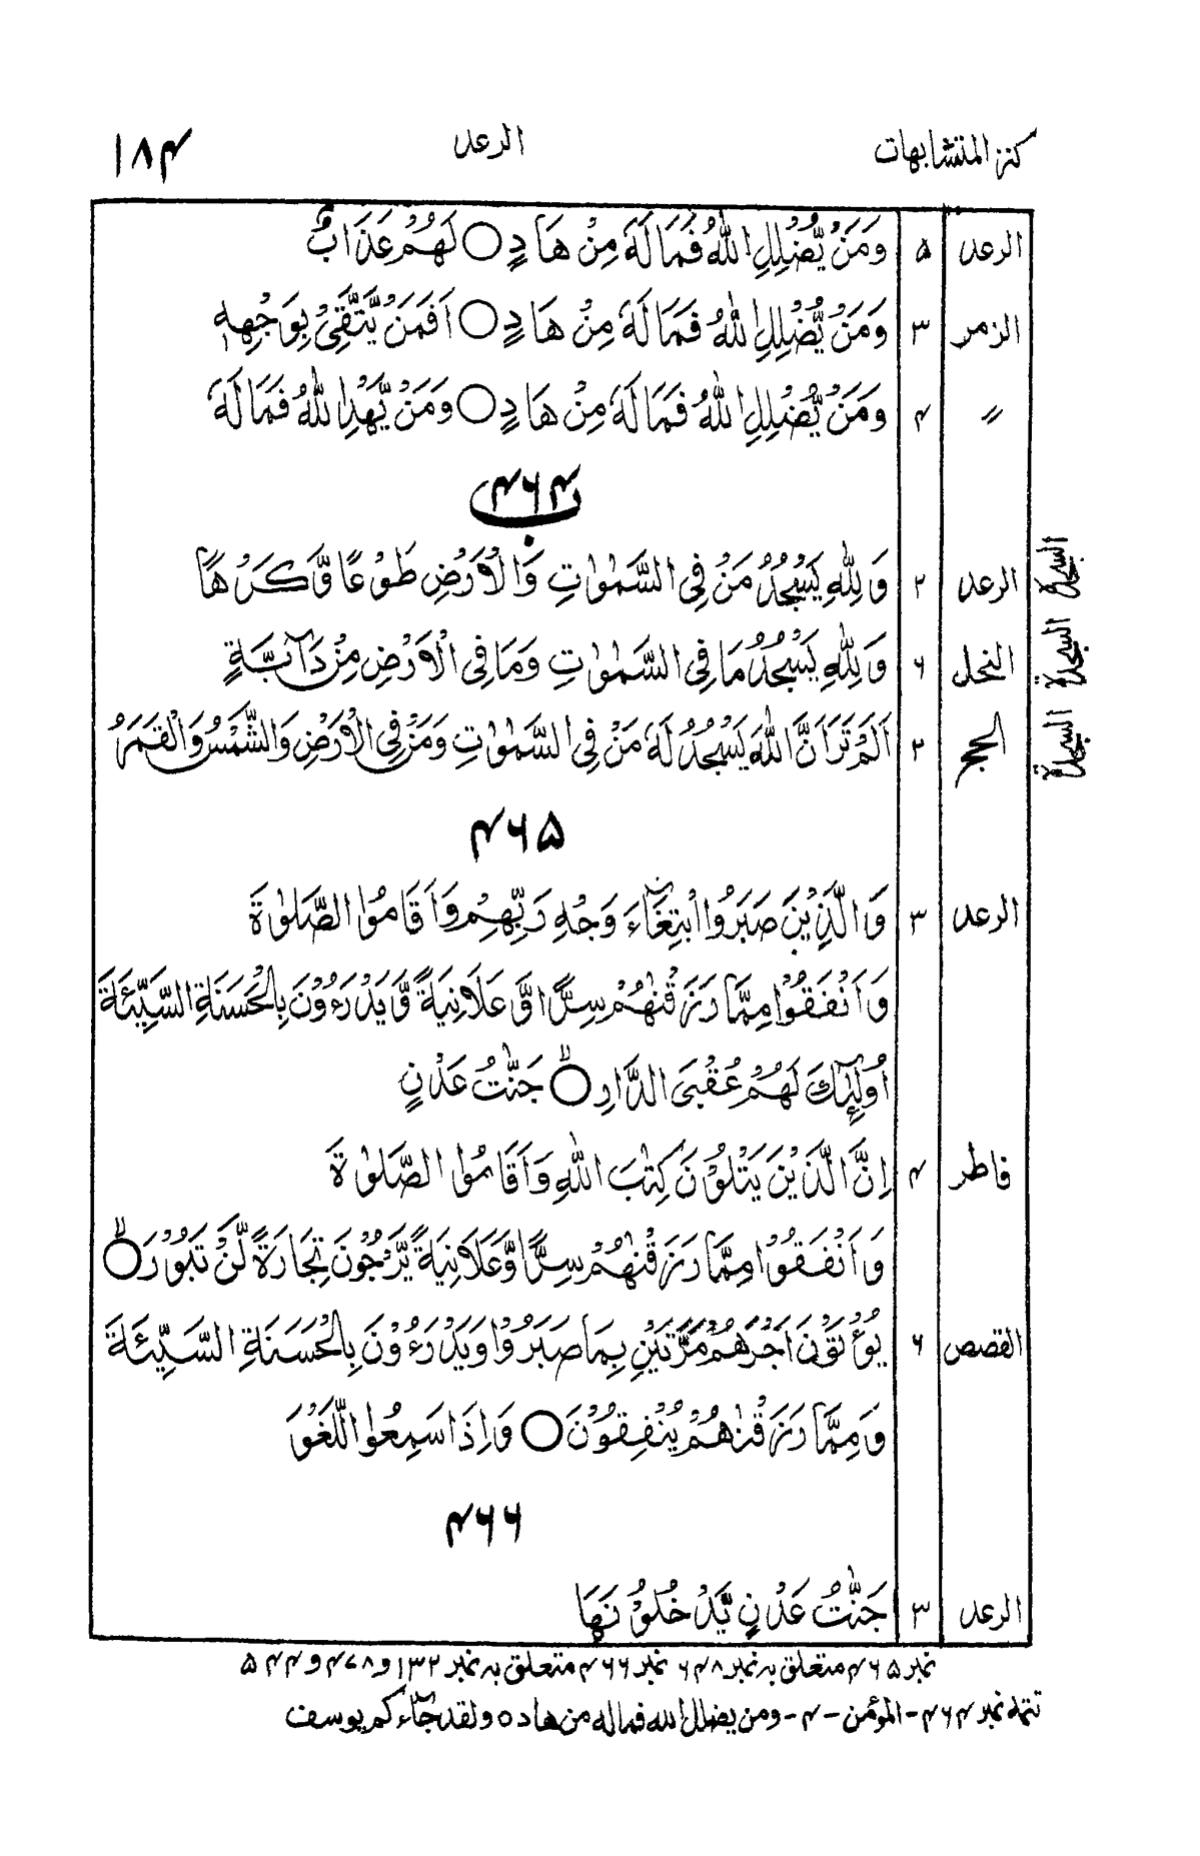 كنز المتشابهات الرعد ۱۸۴
الرعد ۵ وَمَنْ يُّضْلِلِ اللّٰهُ فَمَا لَهٗ مِنْ هَادٍ ○ لَهُمْ عَذَابٌ
الزمر ۳ وَمَنْ يُّضْلِلِ اللّٰهُ فَمَا لَهٗ مِنْ هَادٍ ○ اَفَمَنْ يَّتَّقِيْ بِوَجْهِهٖ
〃 ۴ وَمَنْ يُّضْلِلِ اللّٰهُ فَمَا لَهٗ مِنْ هَادٍ ○ وَمَنْ يَّهْدِ اللّٰهُ فَمَا لَهٗ
۴۶۴ ب
الرعد ۲ وَلِلّٰهِ يَسْجُدُ مَنْ فِي السَّمٰوٰتِ وَالْاَرْضِ طَوْعًا وَّكَرْهًا السجدة
النحل ۶ وَلِلّٰهِ يَسْجُدُ مَا فِي السَّمٰوٰتِ وَمَا فِي الْاَرْضِ مِنْ دَآبَّةٍ السجدة
الحج ۲ اَلَمْ تَرَ اَنَّ اللّٰهَ يَسْجُدُ لَهٗ مَنْ فِي السَّمٰوٰتِ وَمَنْ فِي الْاَرْضِ وَالشَّمْسُ وَالْقَمَرُ السجدة
۴۶۵
الرعد ۳ وَالَّذِيْنَ صَبَرُوا ابْتِغَآءَ وَجْهِ رَبِّهِمْ وَاَقَامُوا الصَّلٰوةَ
وَاَنْفَقُوْا مِمَّا رَزَقْنٰهُمْ سِرًّا وَّعَلَانِيَةً وَّيَدْرَءُوْنَ بِالْحَسَنَةِ السَّيِّئَةَ
اُولٰٓئِكَ لَهُمْ عُقْبَى الدَّارِ ○ۙ جَنّٰتُ عَدْنٍ
فاطر ۴ اِنَّ الَّذِيْنَ يَتْلُوْنَ كِتٰبَ اللّٰهِ وَاَقَامُوا الصَّلٰوةَ
وَاَنْفَقُوْا مِمَّا رَزَقْنٰهُمْ سِرًّا وَّعَلَانِيَةً يَّرْجُوْنَ تِجَارَةً لَّنْ تَبُوْرَ ○ۙ
القصص ۶ يُؤْتَوْنَ اَجْرَهُمْ مَّرَّتَيْنِ بِمَا صَبَرُوْا وَيَدْرَءُوْنَ بِالْحَسَنَةِ السَّيِّئَةَ
وَمِمَّا رَزَقْنٰهُمْ يُنْفِقُوْنَ ○ وَاِذَا سَمِعُوا اللَّغْوَ
۴۶۶
الرعد ۳ جَنّٰتُ عَدْنٍ يَّدْخُلُوْنَهَا
نمبر ۴۶۵ متعلق به نمبر ۶۴۸ نمبر ۴۶۶ متعلق به نمبر ۱۳۲ و ۴۷۸ و ۵۴۴
تتمۂ نمبر ۴۶۴ - المؤمن - ۴ - ومن يضلل الله فماله من هاد ○ ولقد جآءكم يوسف